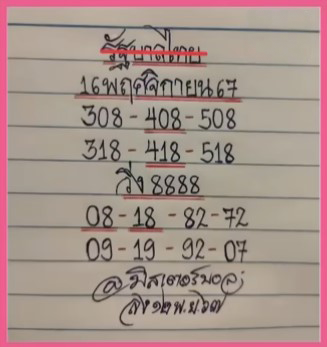 รัฐบาลไทย
16พฤศจิกายน67
308-408-508
318-418-518
วิ่ง 8888
08-18-82-72
09-19-92-07
@มิสเตอร์บอล
ลง ๑๒ พ.ย. ๖๗